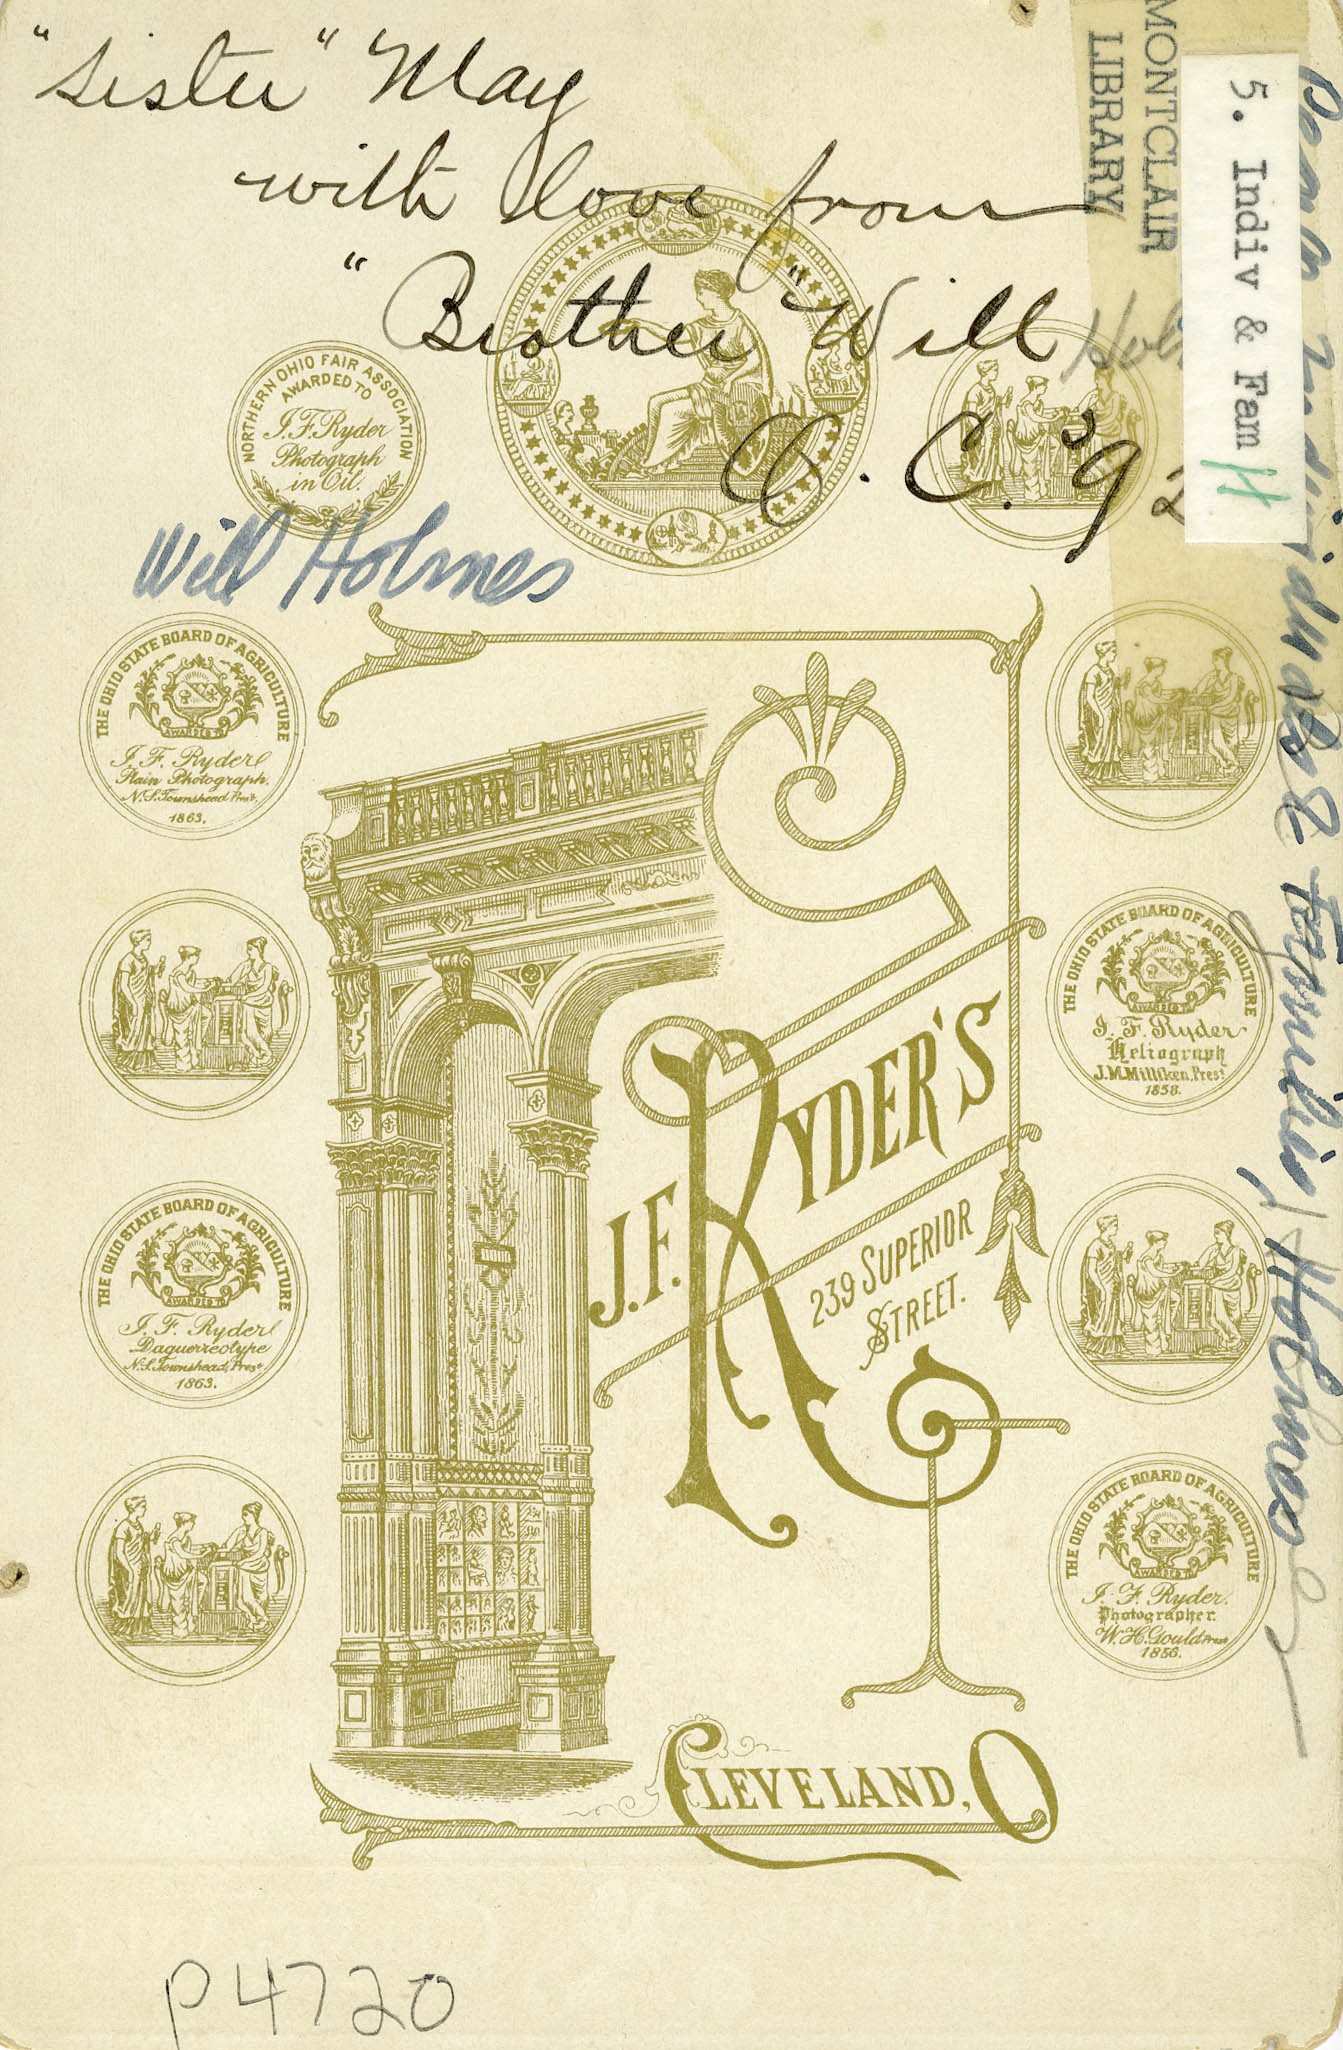 "Sister" May
with love from
"Brother" Will
Hol
O. C. '92
Will Holmes
MONTCLAIR
LIBRARY
5. Indiv & Fam H
People Individuals & Families, Holmes
NORTHERN OHIO FAIR ASSOCIATION
AWARDED TO
J. F. Ryder
Photograph
in Oil.
THE OHIO STATE BOARD OF AGRICULTURE
AWARDED TO
J. F. Ryder
Plain Photograph.
N. S. Townshead, Pres't.
1863.
THE OHIO STATE BOARD OF AGRICULTURE
AWARDED TO
J. F. Ryder
Daguerreotype
N. S. Townshead, Pres't
1863.
THE OHIO STATE BOARD OF AGRICULTURE
AWARDED TO
J. F. Ryder
Heliograph
J. M. Milliken, Pres't
1858.
THE OHIO STATE BOARD OF AGRICULTURE
AWARDED TO
J. F. Ryder.
Photographer.
W. H. Gould Pres't
1856.
J. F. RYDER'S
239 SUPERIOR
STREET.
CLEVELAND, O
P4720